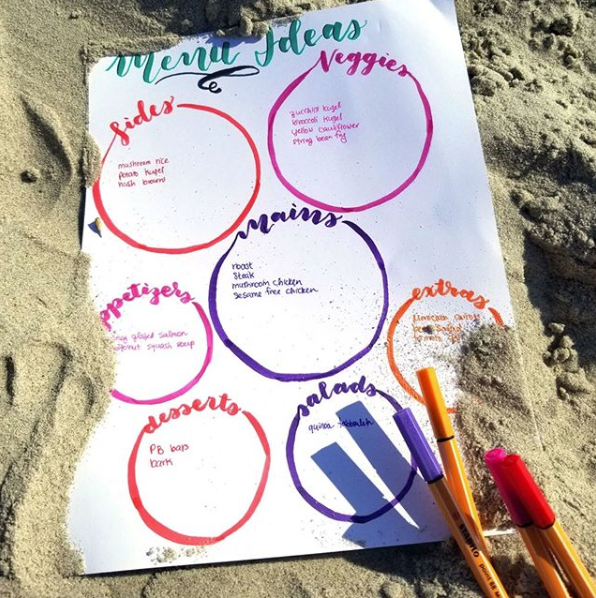 Menu Ideas
Veggies
zucchini kugel
broccoli kugel
yellow cauliflower
string bean fry
Sides
mushroom rice
potato kugel
hash browns
Mains
roast
Steak
mushroom chicken
Sesame free chicken
ppetizers
glazed salmon
squash soup
extras
desserts
PB bars
bark
salads
quinoa tabbouleh
STABILO
point 88